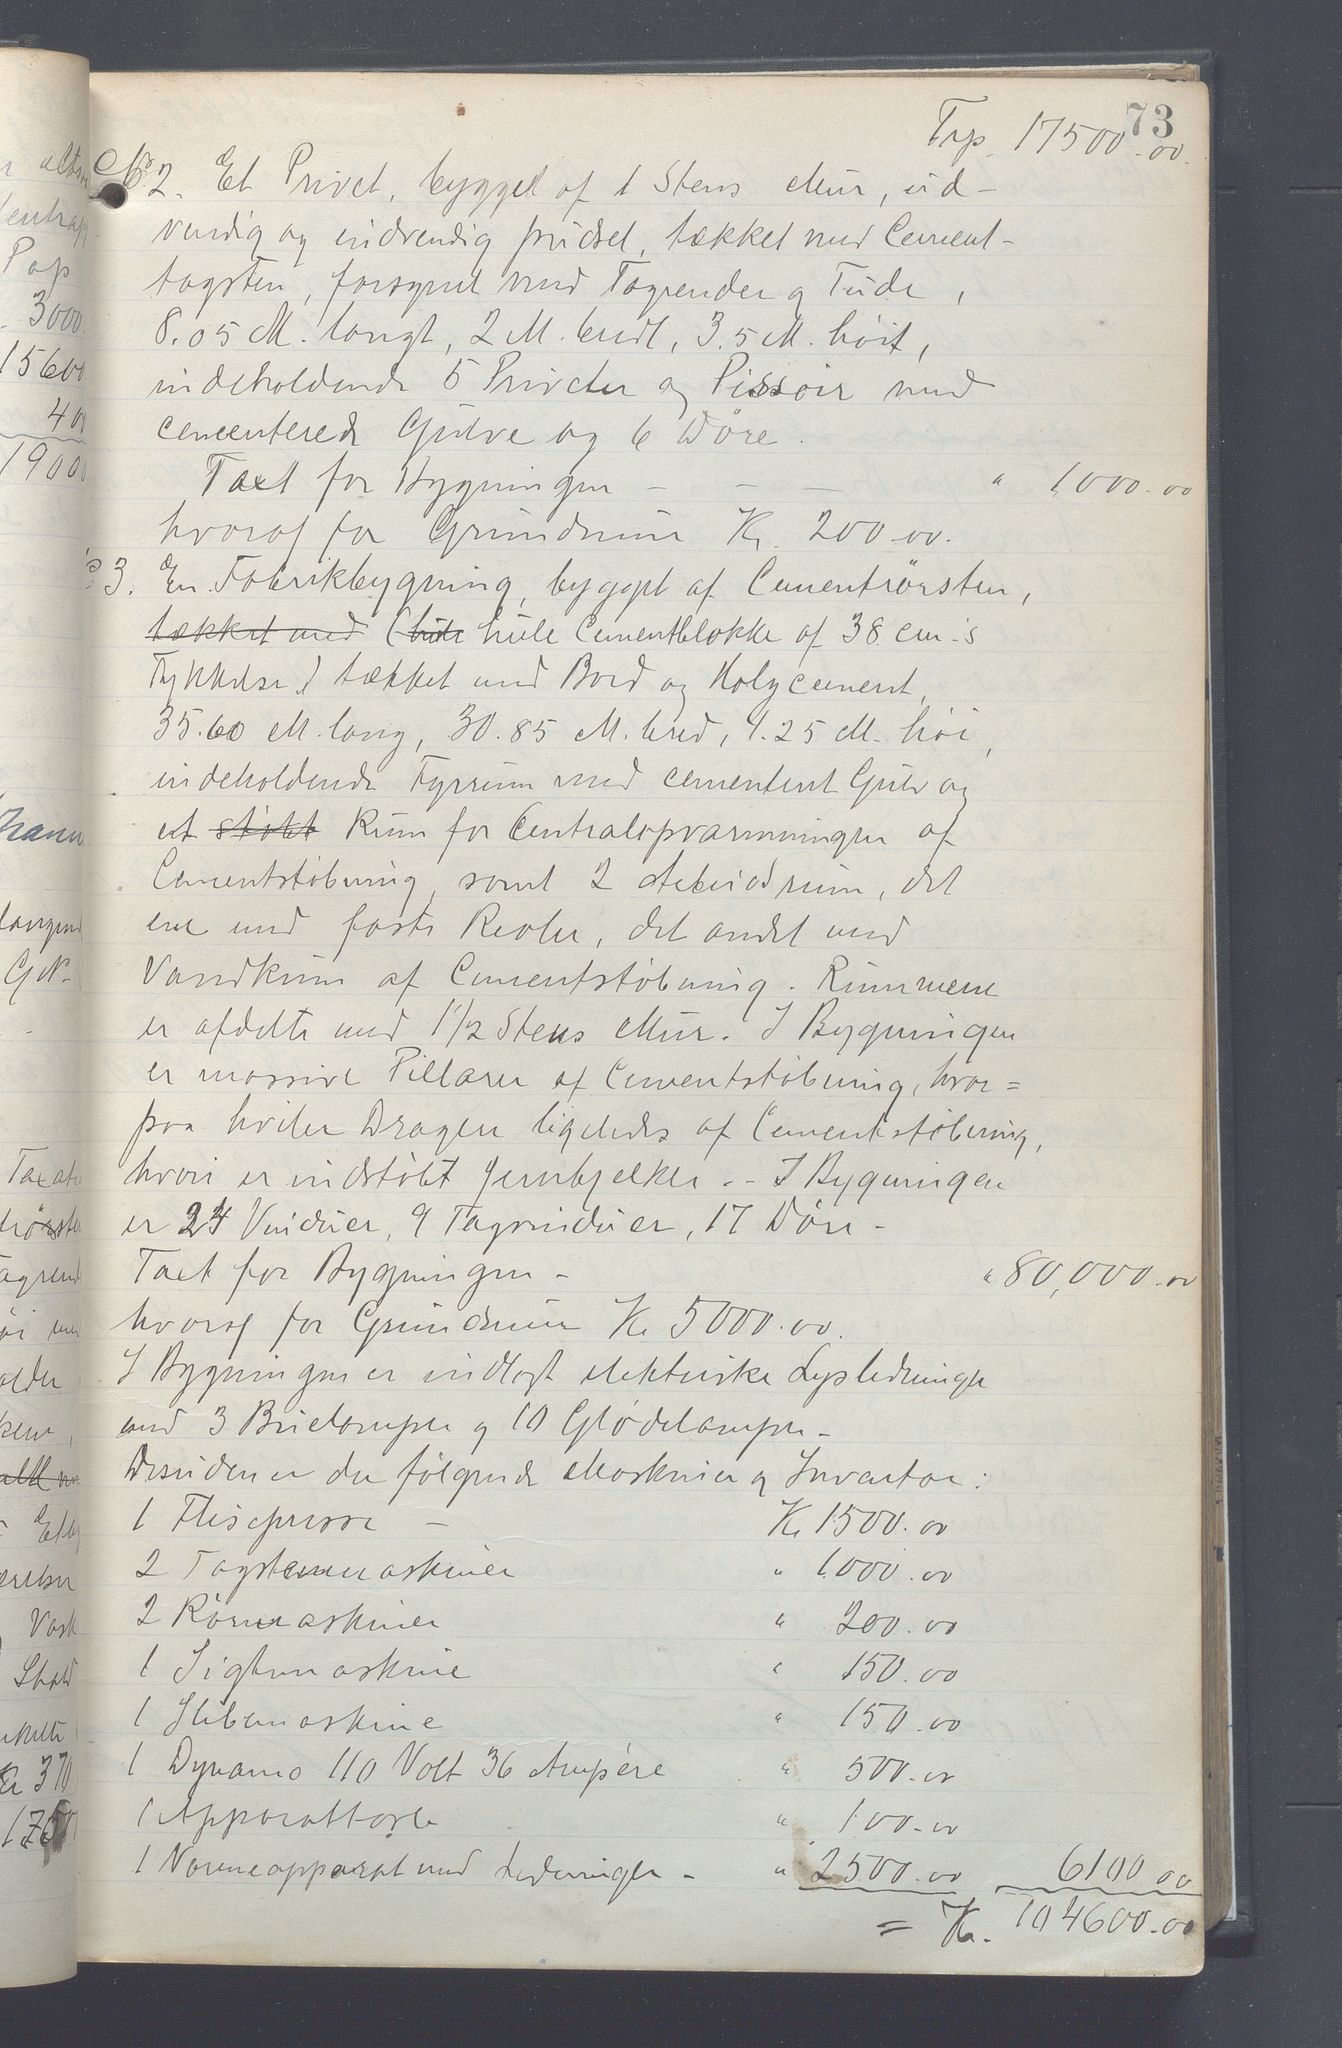 73
Trp. 17500.00.
No 2. Et Privet, bygget af 1 Stens Mur, ud-
vendig og indvendig pudset, tækket med Cement-
tagsten, forsynet med Tagrender og Tude,
8.05 M. langt, 2 M. bredt, 3.5 M. høit,
indeholdende 5 Priveter og Pissoir med
cementerede Gulve og 6 Døre.
Taxt for Bygningen - - - " 1000.00
hvoraf for Grundmur Kr. 200.00.
No 3. En Fabrikbygning, bygget af Cementrørsten,
tækket med (hule hule Cementblokke af 38 cm.s
Tykkelse) tækket med Bord og Holzcement,
35.60 M. lang, 30.85 M. bred, 4.25 M. høi,
indeholdende Fyrrum med cementert Gulv og
et støbt Rum for Centralopvarmningen af
Cementstøbning, samt 2 Arbeidsrum, det
ene med faste Reoler, det andet med
Vandkum af Cementstøbning. Rummene
er afdelte med 1 1/2 Stens Mur. I Bygningen
er massive Pillarer af Cementstøbning, hvor=
paa hviler Dragere ligeledes af Cementstøbning,
hvori er indstøbt Jernbjelker. - I Bygningen
er 24 Vinduer, 9 Tagvinduer, 17 Døre -
Taxt for Bygningen - " 80,000.00
hvoraf for Grundmur Kr. 5000.00.
I Bygningen er indlagt elektriske Lysledninger
med 3 Buelamper og 10 Glødelamper -
Desuden er der følgende Maskiner og Inventar:
1 Flisepresse - Kr. 1500.00
2 Tagstenmaskiner " 1000.00
2 Rørmaskiner " 200.00
1 Sigtemaskine " 150.00
1 Slibemaskine " 150.00
1 Dynamo 110 Volt 36 Ampére " 500.00
1 Apparattavle " 100.00
1 Varmeapparat med Ledninger - " 2500.00 6100.00
= Kr. 104600.00